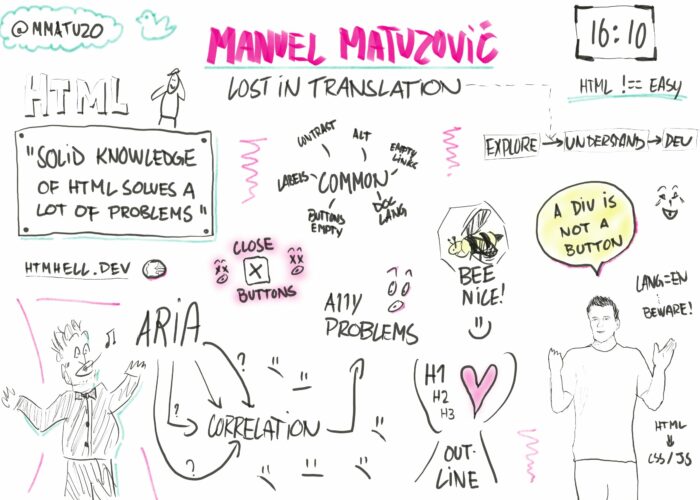 @MMATUZO
MANUEL MATUZOVIČ
16:10
LOST IN TRANSLATION
HTML !== EASY
HTML
"SOLID KNOWLEDGE
OF HTML SOLVES A
LOT OF PROBLEMS"
HTMHELL.DEV
CONTRAST
ALT
EMPTY
LINKS
LABELS
COMMON
BUTTONS
EMPTY
DOC
LANG
EXPLORE → UNDERSTAND → DEV
A DIV IS
NOT A
BUTTON
CLOSE
X
BUTTONS
BEE
NICE!
A11Y
PROBLEMS
LANG=EN
BEWARE!
ARIA
?
?
?
CORRELATION
H1
H2
H3
OUT-
LINE
HTML
CSS/JS